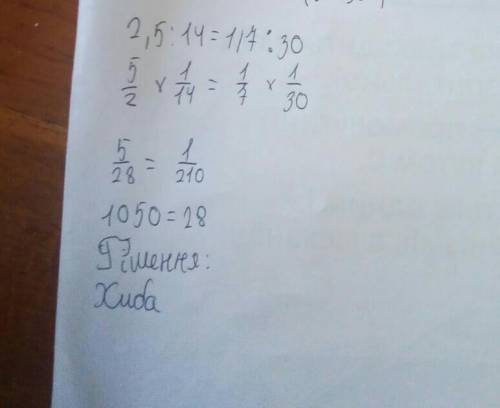 2,5:14=1/7:30
5/2 × 1/14 = 1/7 × 1/30
5/28 = 1/210
1050=28
Рішення:
Хиба